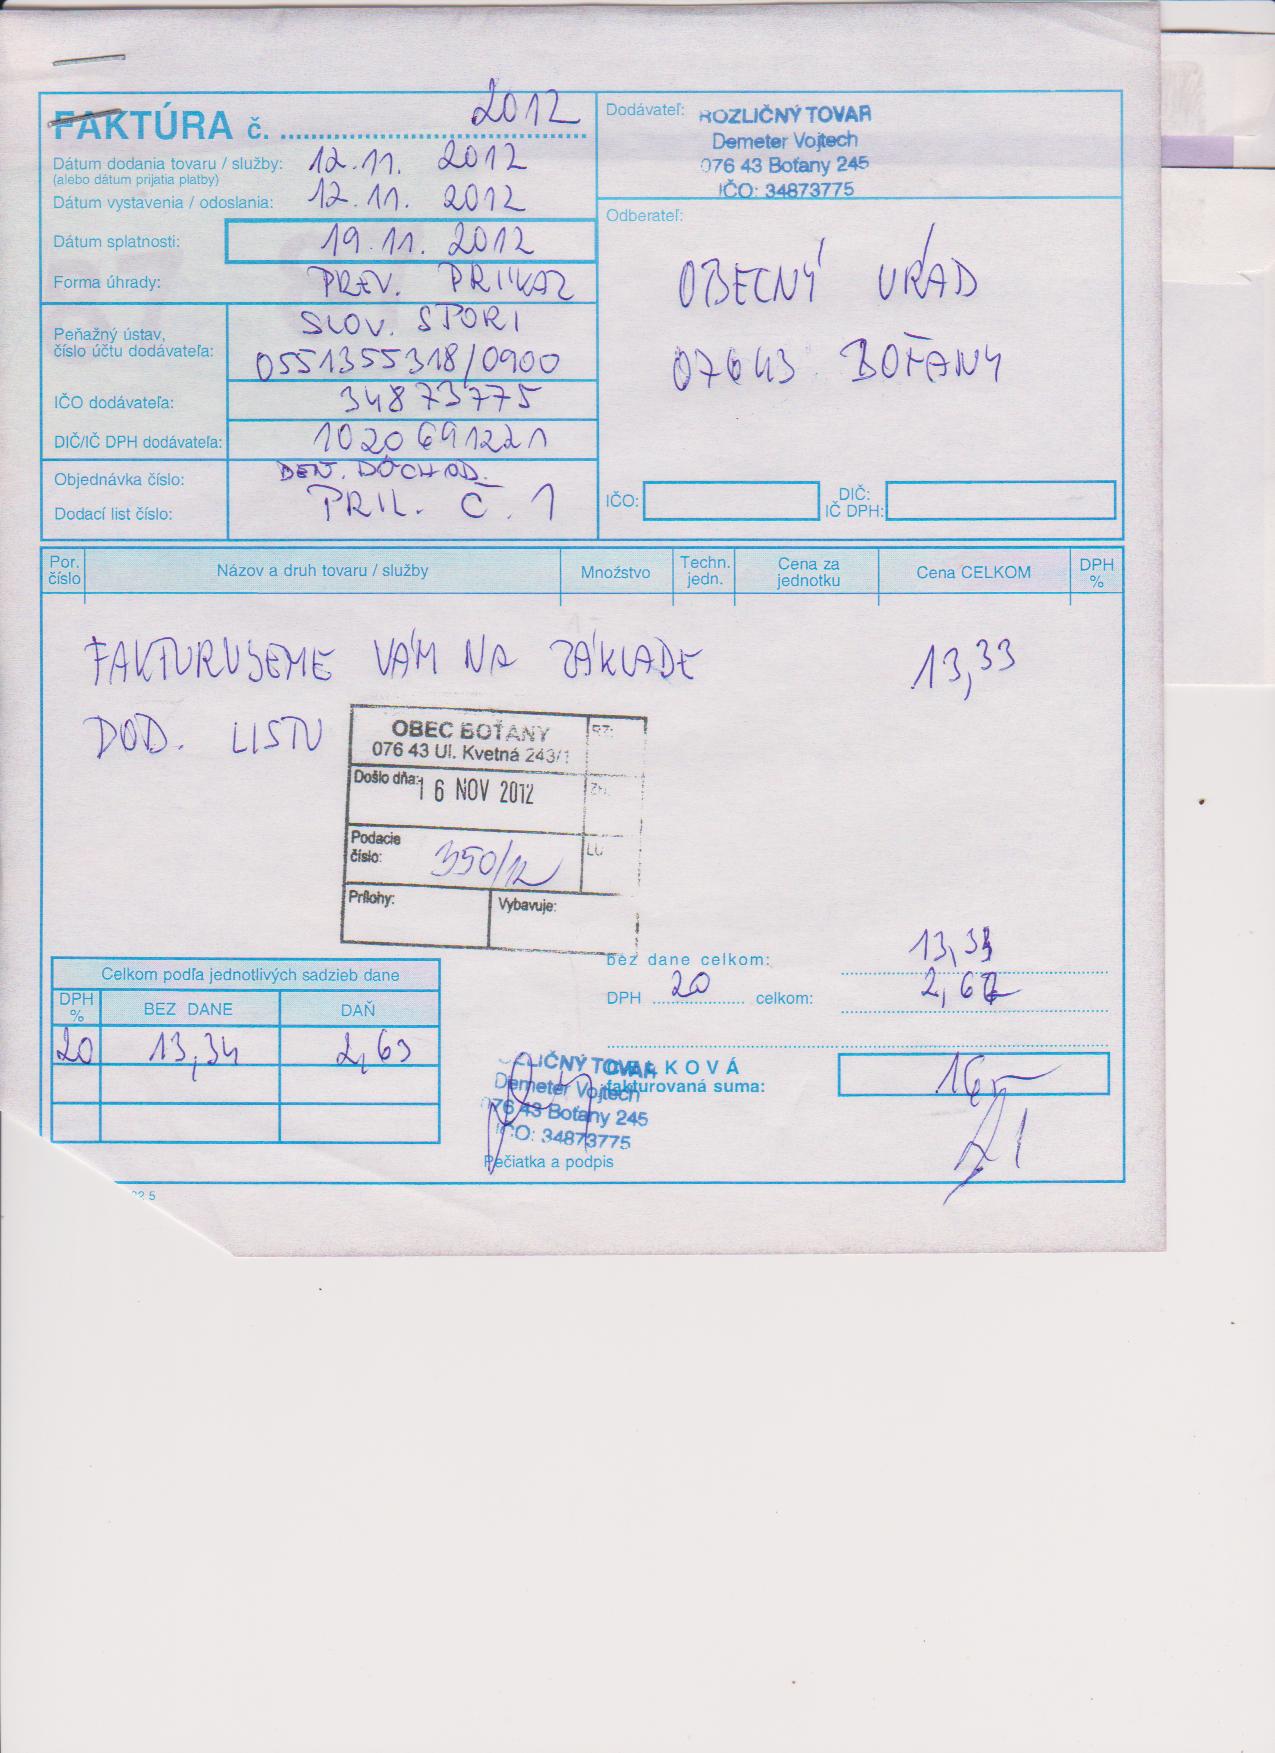 FAKTÚRA č. 2012
Dátum dodania tovaru / služby: 12.11. 2012
(alebo dátum prijatia platby)
Dátum vystavenia / odoslania: 12.11. 2012
Dátum splatnosti: 19.11. 2012
Forma úhrady: PREV. PRÍKAZ
Peňažný ústav, SLOV. SPORI
číslo účtu dodávateľa: 0551355318/0900
IČO dodávateľa: 34873775
DIČ/IČ DPH dodávateľa: 1020691221
Objednávka číslo: DEN. DÔCHOD.
Dodací list číslo: PRIL. Č. 1
Dodávateľ: ROZLIČNÝ TOVAR
Demeter Vojtech
076 43 Boťany 245
IČO: 34873775
Odberateľ:
OBECNÝ ÚRAD
07643 BOŤANY
IČO: DIČ:
IČ DPH:
Por. číslo Názov a druh tovaru / služby Množstvo Techn. jedn. Cena za jednotku Cena CELKOM DPH %
FAKTURUJEME VÁM NA ZÁKLADE 13,33
DOD. LISTU
OBEC BOŤANY RZ:
076 43 Ul. Kvetná 243/1
Došlo dňa: 16 NOV 2012
Podacie číslo: 350/12 LU
Prílohy: Vybavuje:
bez dane celkom: 13,33
DPH 20 celkom: 2,67
Celkom podľa jednotlivých sadzieb dane
DPH % BEZ DANE DAŇ
20 13,34 2,63
CELKOVÁ
fakturovaná suma: 16,-
ROZLIČNÝ TOVAR
Demeter Vojtech
076 43 Boťany 245
IČO: 34873775
Pečiatka a podpis